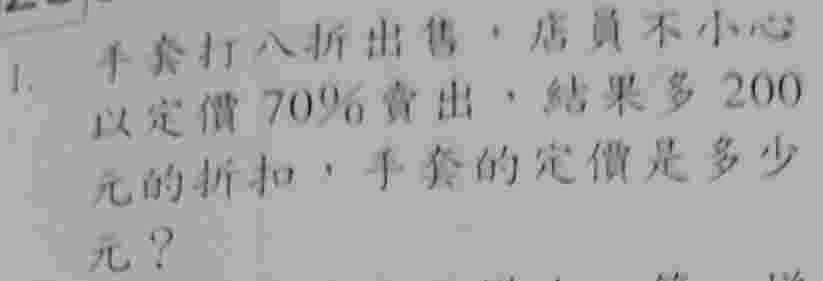 1. 手套打八折出售，店員不小心
以定價70%賣出，結果多200
元的折扣，手套的定價是多少
元？